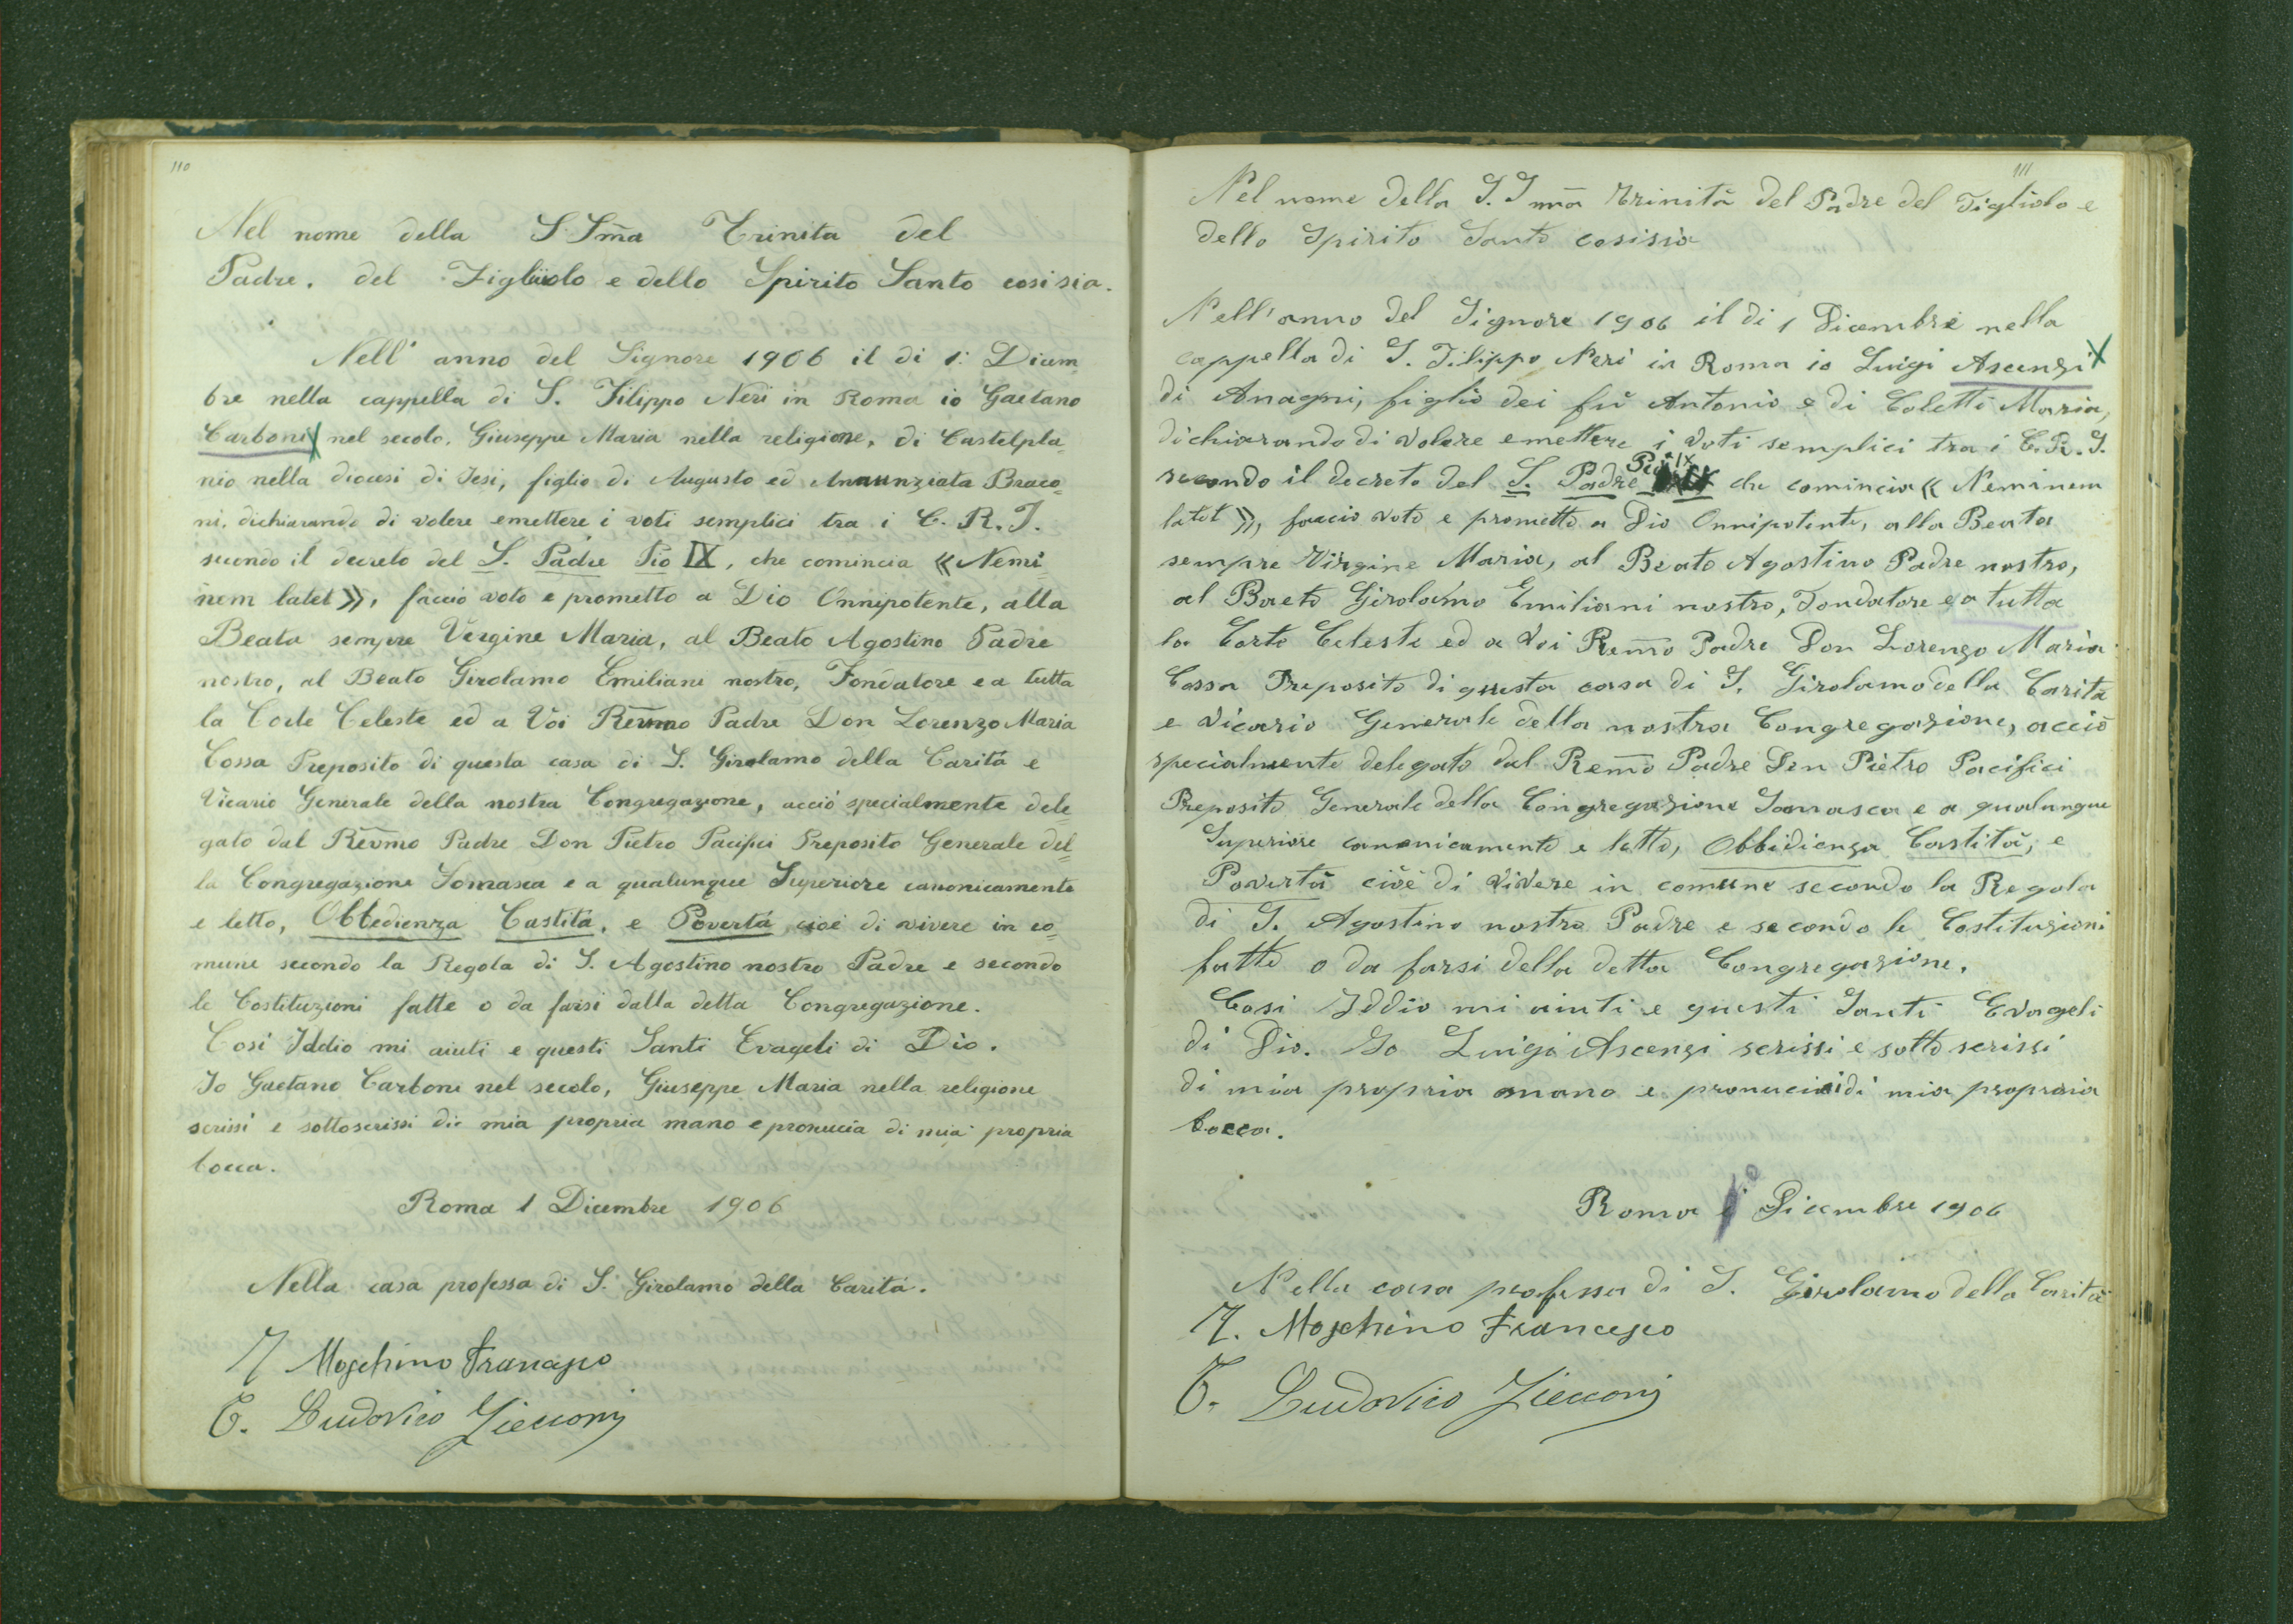 110
Nel nome della S Sm̄a Trinita del
Padre. del Figliuolo e dello Spirito Santo cosi sia.
Nell' anno del Signore 1906 il di 1: Dicem
bre nella cappella di S. Filippo Neri in Roma io Gaetano
Carboni nel secolo, Giuseppe Maria nella religione, di Castelpla-
nio nella diocesi di Jesi, figlio di Augusto ed Annunziata Braco-
ni, dichiarando di volere emettere i voti semplici tra i C. R. S.
secondo il decreto del S. Padre Pio IX, che comincia « Nemi-
nem latet », faccio voto e prometto a Dio Onnipotente, alla
Beata sempre Vergine Maria, al Beato Agostino Padre
nostro, al Beato Girolamo Emiliani nostro, Fondatore e a tutta
la Corte Celeste ed a Voi Revm̄o Padre Don Lorenzo Maria
Cossa Preposito di questa casa di S. Girolamo della Carità e
Vicario Generale della nostra Congregazione, acciò specialmente dele
gato dal Revm̄o Padre Don Pietro Pacifici Preposito Generale del=
la Congregazione Somasca e a qualunque Superiore canonicamente
e letto, Obbedienza Castità, e Povertà cioè di vivere in co=
mune secondo la Regola di S. Agostino nostro Padre e secondo
le Costituzioni fatte o da farsi dalla detta Congregazione.
Cosi Iddio mi aiuti e questi Santi Evageli di Dio.
Io Gaetano Carboni nel secolo, Giuseppe Maria nella religione
scrissi e sottoscrissi di mia propria mano e pronucia di mia propria
bocca.
Roma 1 Dicembre 1906
Nella casa professa di S. Girolamo della Carità.
Moschino Francesco
T. Ludovico Zicconj
111
Nel nome della S. S mm̄a Trinità del Padre del Figliolo e
dello Spirito Santo cosisia
Nell'anno del Signore 1906 il di 1 Dicembre nella
cappella di S. Filippo Neri in Roma io Luigi Ascenzi
di Anagni, figlio dei fù Antonio e di Coletti Maria,
dichiarando di volere emettere i voti semplici tra i C. R. S.
secondo il decreto del S. Padre Pio IX che comincia « Neminem
latet », faccio voto e prometto a Dio Onnipotente, alla Beata
sempre Virgine Maria, al Beato Agostino Padre nostro,
al Baeto Girolamo Emiliani nostro, Fondatore e a tutta
la Corte Celeste ed a Voi Rem̄o Padre Don Lorenzo Maria
Cossa Preposito di questa casa di S. Girolamo della Carità
e Vicario Generale della nostra Congregazione, acciò
specialmente delegato dal Rem̄o Padre Don Pietro Pacifici
Preposito Generale della Congregazione Somasca e a qualunque
Superiore canonicamente e letto, Obbidienza Castità, e
Povertà cioè di vivere in comune secondo la Regola
di S. Agostino nostro Padre e secondo le Costituzioni
fatte o da farsi della detta Congregazione.
Cosi Iddio mi aiuti e questi Santi Evageli
di Dio. Io Luigi Ascenzi scrissi e sotto scrissi
di mia propria mano e pronuciai di mia propraia
bocca.
Roma 1° Dicembre 1906
Nella casa professa di S. Girolamo della Carità
Moschino Francesco
T. Ludovico Zicconj